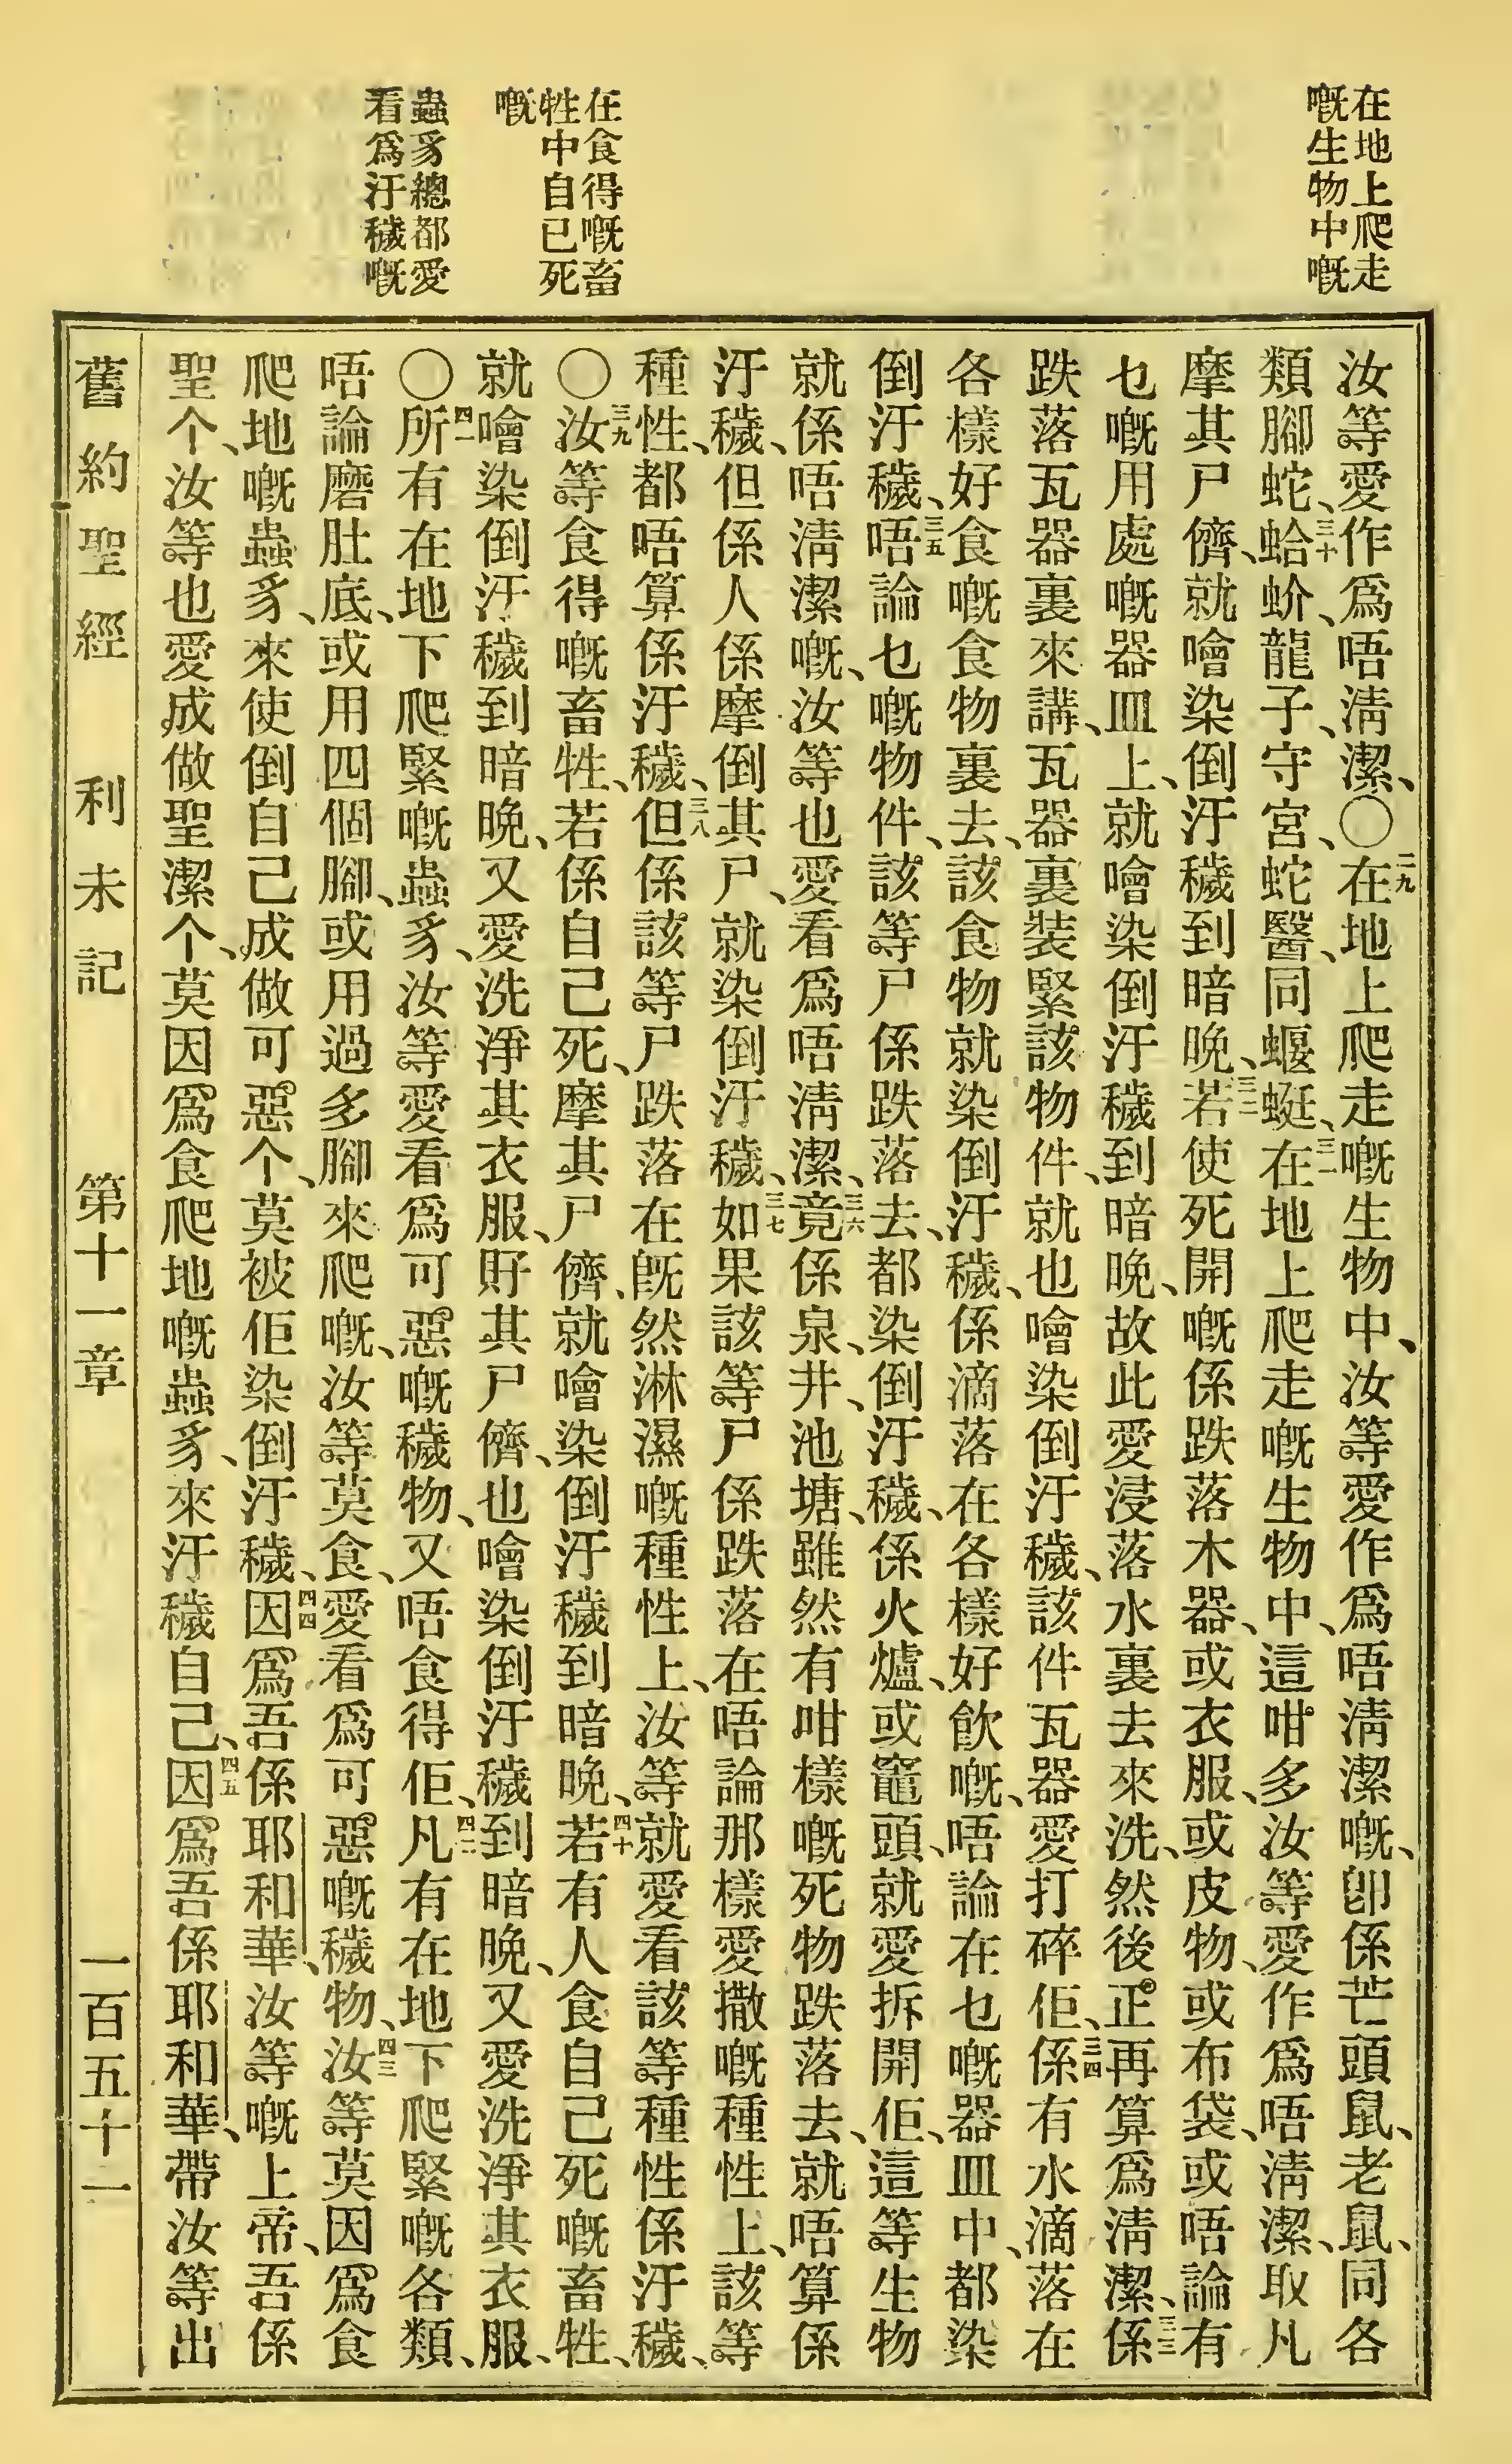 在地上爬走
嘅生物中嘅
在食得嘅畜
牲中自己死
嘅
蟲豸總都愛
看爲汙穢嘅
汝等愛作爲唔淸潔、〇二九在地上爬走嘅生物中、汝等愛作爲唔淸潔嘅、卽係芒頭鼠、老鼠、同各
類腳蛇、三十蛤蚧、龍子、守宮、蛇醫、同蝘蜓、三一在地上爬走嘅生物中、這咁多汝等愛作爲唔淸潔、取凡
摩其尸儕、就噲染倒汙穢到暗晚、三二若使死開嘅係跌落木器、或衣服、或皮物、或布袋、或唔論有
乜嘅用處嘅器皿上、就噲染倒汙穢到暗晚、故此愛浸落水裏去來洗、然後正再算爲淸潔、三三係
跌落瓦器裏來講、瓦器裏裝緊該物件、就也噲染倒汙穢、該件瓦器愛打碎佢、三四係有水滴落在
各樣好食嘅食物裏去、該食物就染倒汙穢、係滴落在各樣好飮嘅、唔論在乜嘅器皿中、都染
倒汙穢、三五唔論乜嘅物件、該等尸係跌落去、都染倒汙穢、係火爐、或竈頭、就愛拆開佢、這等生物
就係唔淸潔嘅、汝等也愛看爲唔淸潔、三六竟係泉、井、池塘、雖然有咁樣嘅死物跌落去、就唔算係
汙穢、但係人係摩倒其尸、就染倒汙穢、三七如果該等尸係跌落在唔論那樣愛撒嘅種性上、該等
種性、都唔算係汙穢、三八但係該等尸跌落在旣然淋濕嘅種性上、汝等就愛看該等種性係汙穢、
〇三九汝等食得嘅畜牲、若係自己死、摩其尸儕、就噲染倒汙穢到暗晚、四十若有人食自己死嘅畜牲、
就噲染倒汙穢到暗晚、又愛洗淨其衣服、𧵳其尸儕、也噲染倒汙穢到暗晚、又愛洗淨其衣服、
〇四一所有在地下爬緊嘅蟲豸、汝等愛看爲可惡嘅穢物、又唔食得佢、四二凡有在地下爬緊嘅各類、
唔論磨肚底、或用四個腳、或用過多腳來爬嘅、汝等莫食、愛看爲可惡嘅穢物、四三汝等莫因爲食
爬地嘅蟲豸、來使倒自己成做可惡个、莫被佢染倒汙穢、四四因爲吾係耶和華、汝等嘅上帝、吾係
聖个、汝等也愛成做聖潔个、莫因爲食爬地嘅蟲豸、來汙穢自己、四五因爲吾係耶和華、帶汝等出
舊約聖經　利未記　第十一章　一百五十二